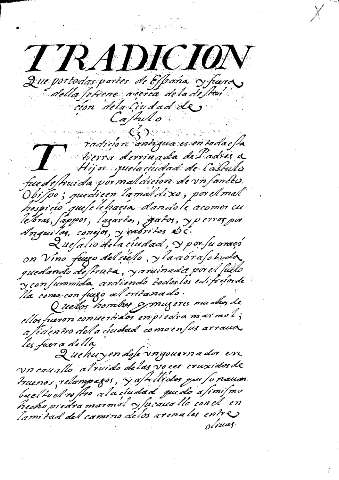 TRADICION
Que por todas partes de España y fuera
della se tiene acerca de la destrui
cion de la Ciudad de
Castulo
Tradicion antigua es en toda esta
tierra derribada de Padres a
Hijos que la ciudad de Castulo
fue destruida por maldicion de un santo
Obispo; que dicen la maldixo, por el mal
ospicio que se le hacia dandole a comer cu
lebras, sapos, lagartos, gatos, y perros por
Anguilas, conejos, y cabritos &c.
Que salio de la ciudad, y por su oraçi
on vino fuego del cielo, y la abrasó toda
quedando desierta, y arruinada por el suelo
y consumida, ardiendo todos los edificios de
lla como con fuego alquitranado.
Que los hombres, y mugeres muchos de
ellos fueron convertidos en piedra marmol;
asi dentro de la ciudad como en sus arrava
les fuera della
Que huyendose un governador en
un cavallo al ruido de las voces cruxidos de
truenos, relampagos, y astillidos por su
buelto el rostro a la ciudad quedo asimismo
hecho piedra marmol y su cavallo con el en
la mitad del camino de los arenales entre
olivas